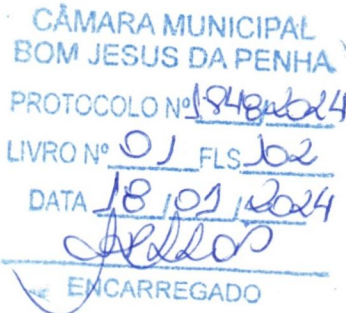 CÂMARA MUNICIPAL
BOM JESUS DA PENHA
PROTOCOLO Nº 1848-2024
LIVRO Nº 01 FLS 102
DATA 18/01/2024
ENCARREGADO